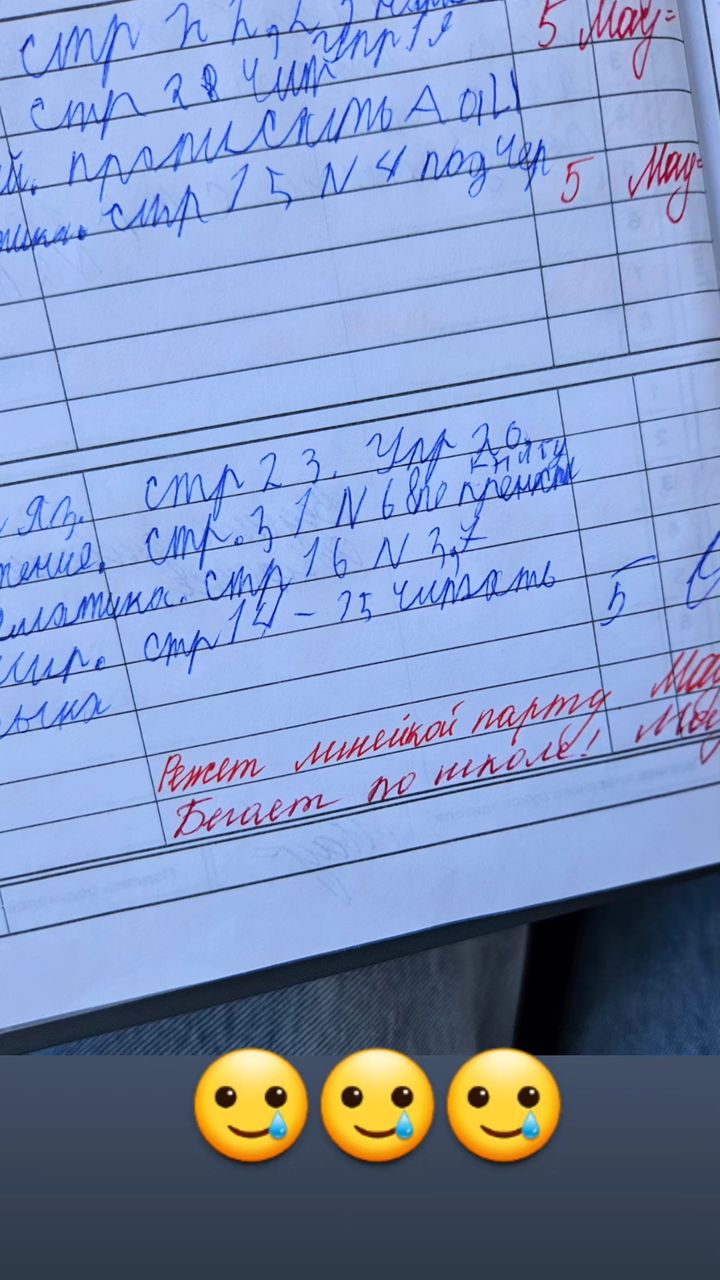 стр 22, 27
упр 19
5 Мау=
стр 28 чит
й. прописать
стр 15 N 4 подчер
5 Мау=
яз. стр 23. Упр 20.
тение. стр. 31 N 6
книгу
матика. стр 16 N 3,7
мир. стр 14 - 25 читать
5
Режет линейкой парту
Бегает по школе!